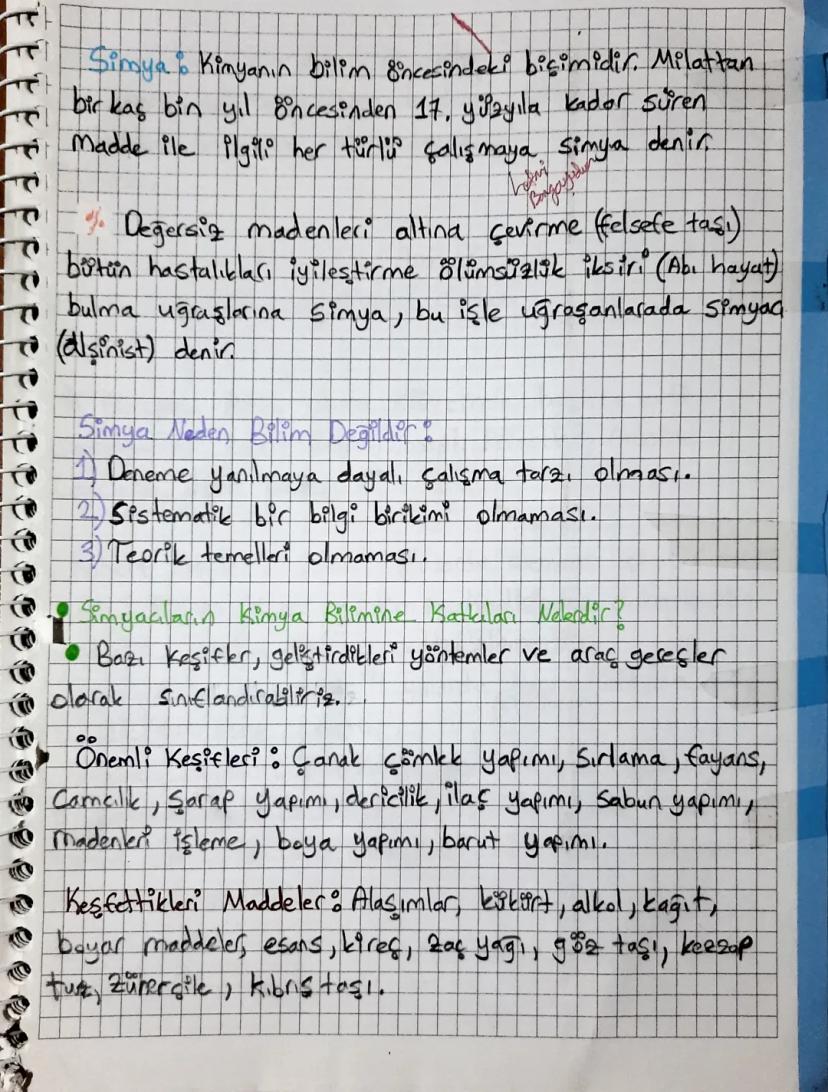 Simya: Kimyanın bilim öncesindeki biçimidir. Milattan
bir kaç bin yıl öncesinden 17. yüzyıla kadar süren
madde ile ilgili her türlü çalışmaya simya denir.
% Değersiz madenleri altına çevirme (felsefe taşı)
bütün hastalıkları iyileştirme ölümsüzlük iksiri (Abı hayat)
bulma uğraşlarına simya, bu işle uğraşanlarada simyacı
(Alşinist) denir.
Simya Neden Bilim Değildir:
1) Deneme yanılmaya dayalı çalışma tarzı olması.
2) Sistematik bir bilgi birikimi olmaması.
3) Teorik temelleri olmaması.
• Simyacıların Kimya Bilimine Katkıları Nelerdir?
• Bazı keşifler, geliştirdikleri yöntemler ve araç gereçler
olarak sınıflandırabiliriz.
Önemli Keşifleri: Çanak çömlek yapımı, Sırlama, fayans,
Camcılık, Şarap yapımı, dericilik, ilaç yapımı, Sabun yapımı,
madenleri işleme, boya yapımı, barut yapımı.
Keşfettikleri Maddeler: Alaşımlar, kükürt, alkol, kağıt,
boyar maddeler, esans, kireç, zaç yağı, göz taşı, kezzap
tuz, zünergile, kıbrıs taşı.